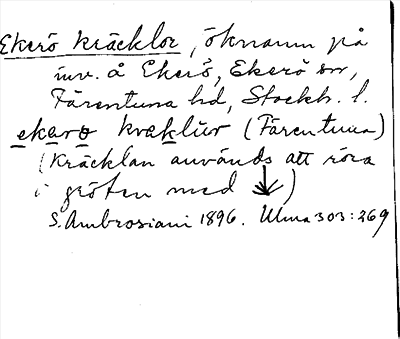 Ekerö kräcklor, öknamn på
inv. å Ekerö, Ekerö sn,
Färentuna hd, Stockh. l.
ekarö kræklur (Färentuna)
(Kräcklan används att röra
i gröten med ↓)
S. Ambrosiani 1896. Ulma 303:269